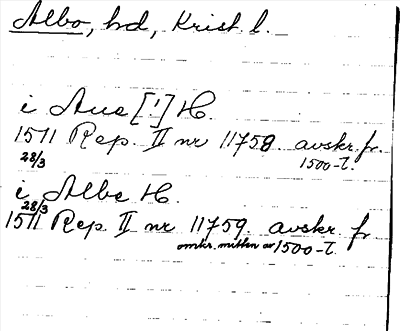 Albo, hd, Krist. l.
i Aue [!] H.
1511 28/3 Rep. II nr 11758 avskr. fr.
1500-t.
i Albe H.
1511 28/3 Rep. II nr 11759. avskr. fr
omkr. mitten av 1500-t.